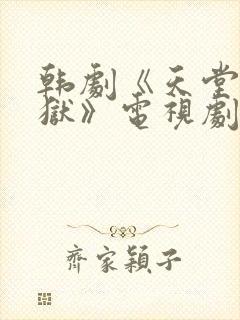 韩劇《天堂
獄》電視劇
齊家穎子